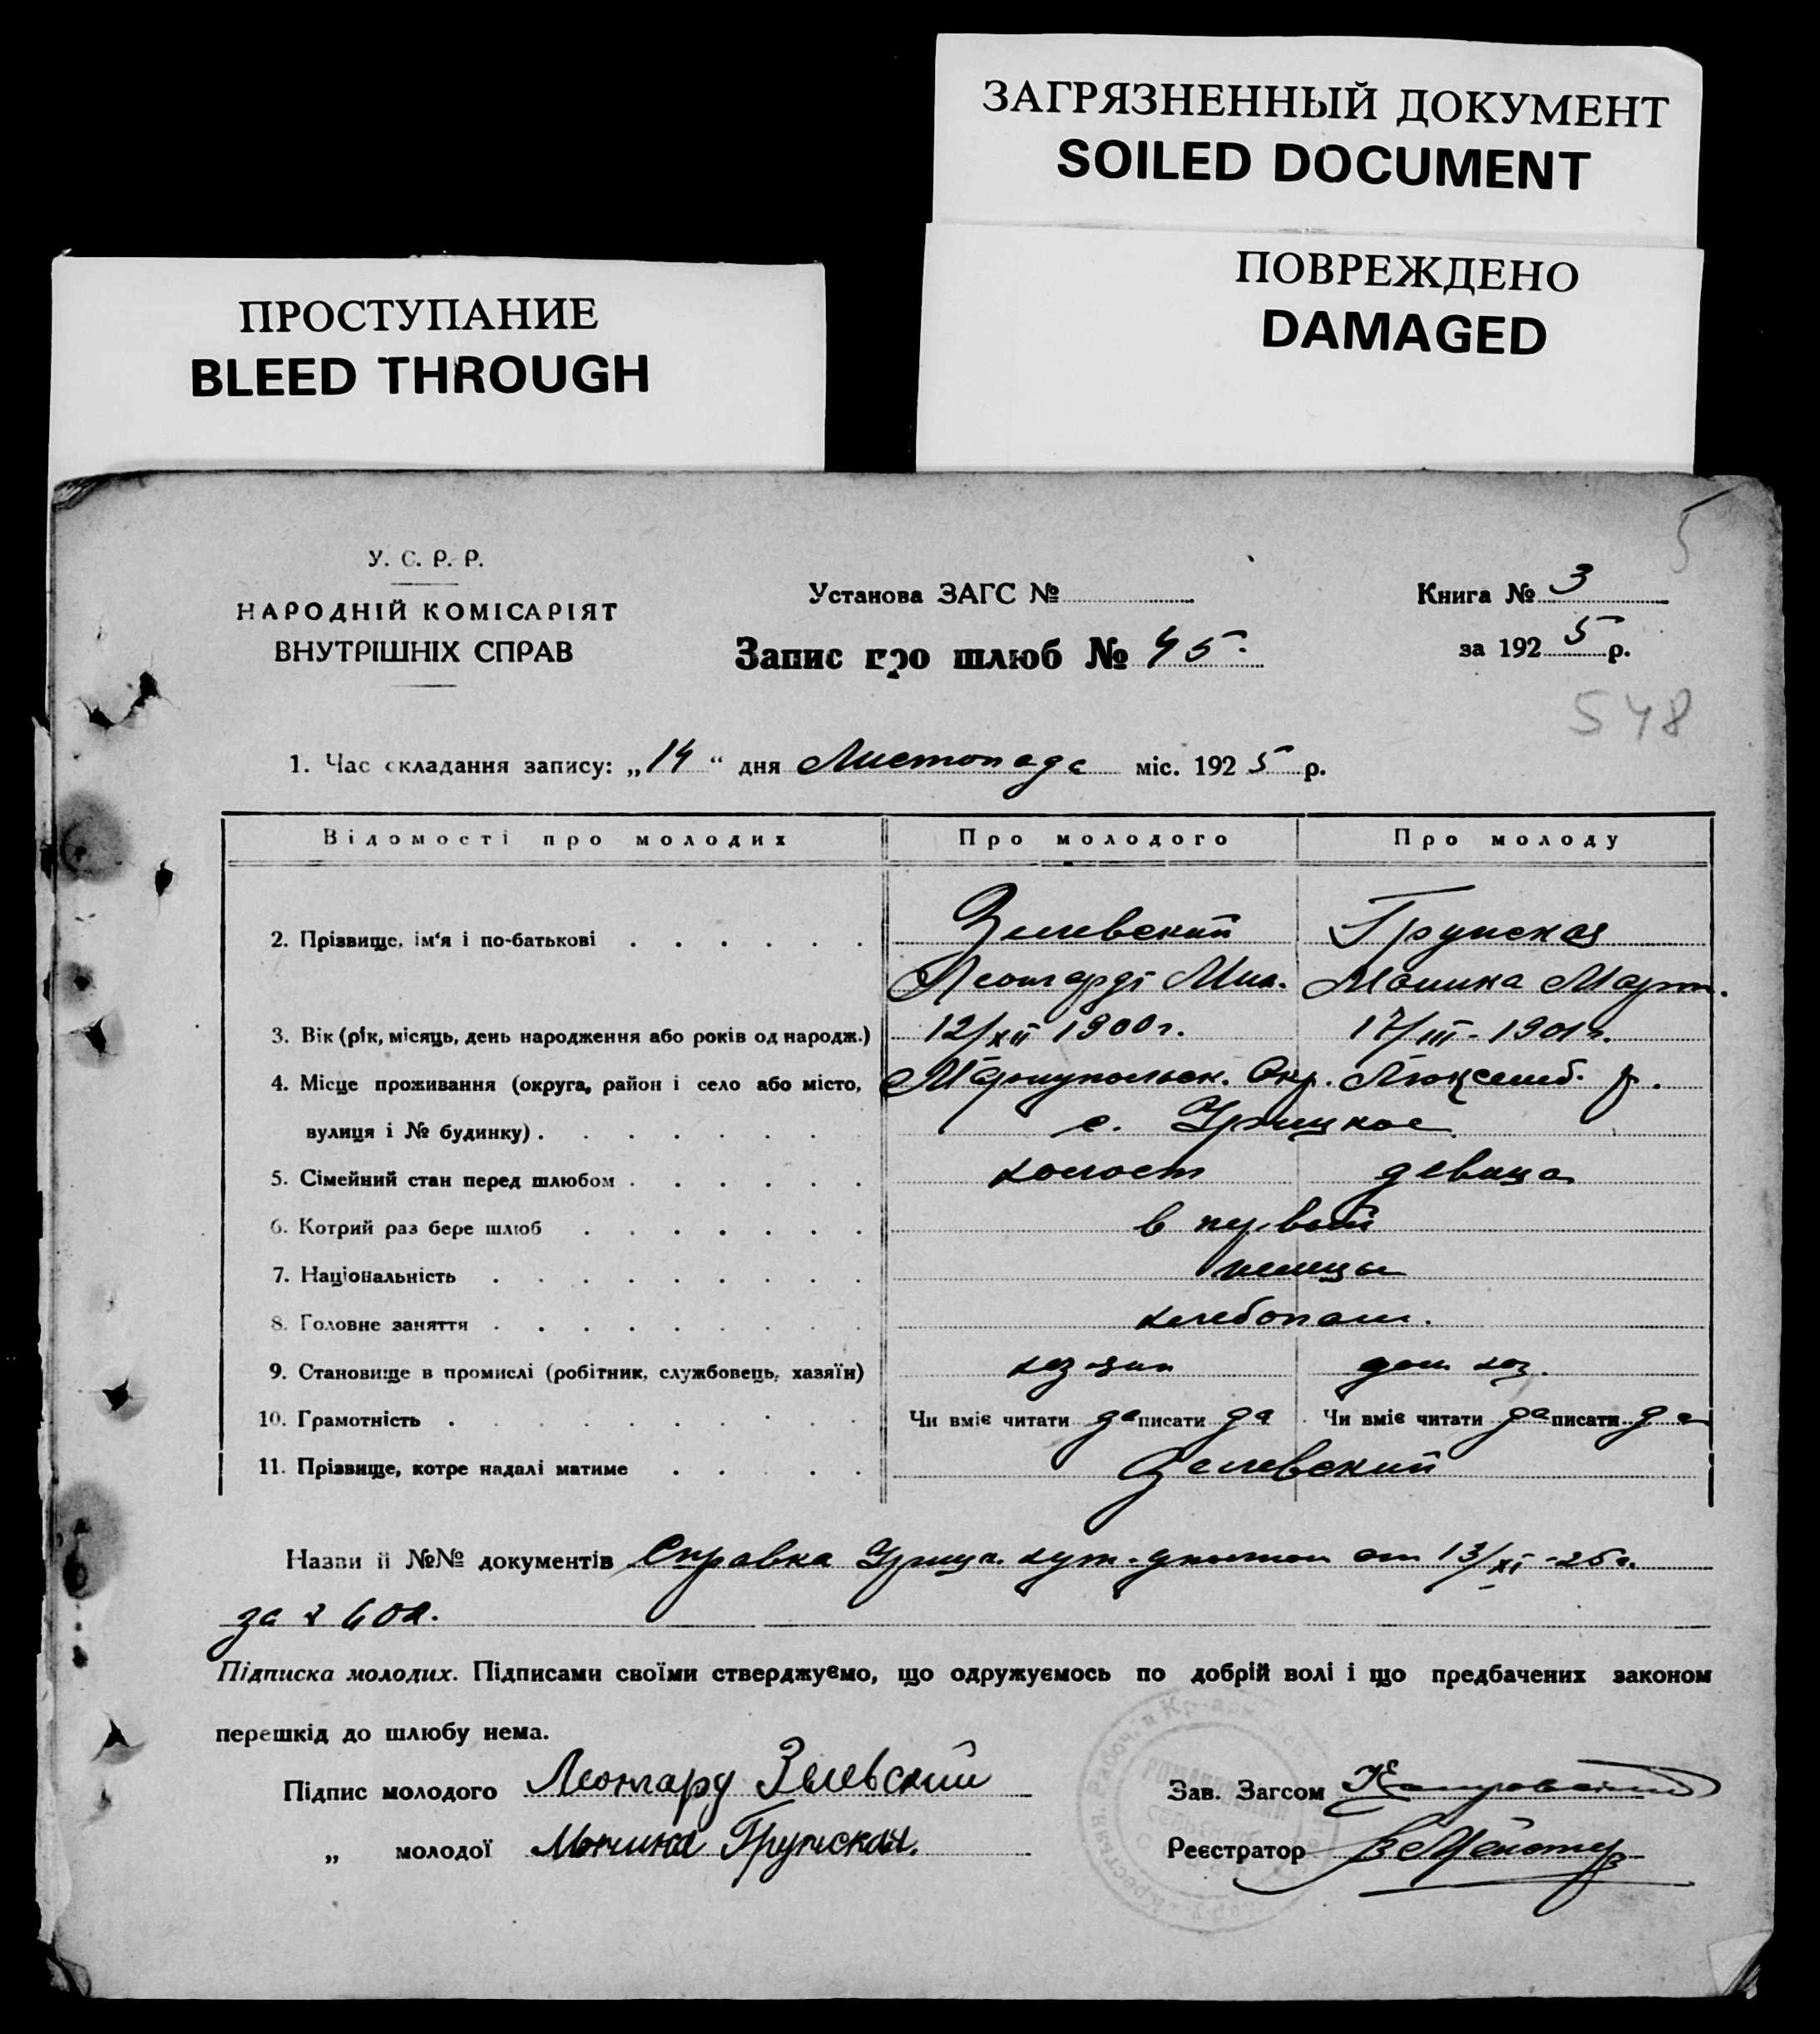 ЗАГРЯЗНЕННЫЙ ДОКУМЕНТ
SOILED DOCUMENT
ПОВРЕЖДЕНО
DAMAGED
ПРОСТУПАНИЕ
BLEED THROUGH
5
У. С. Р. Р.
НАРОДНІЙ КОМІСАРІЯТ
ВНУТРІШНІХ СПРАВ
Установа ЗАГС №
Запис про шлюб № 45.
Книга № 3
за 1925 р.
548
1. Час складання запису: „14“ дня Листопада міс. 1925 р.
Відомості про молодих Про молодого Про молоду
2. Прізвище, ім'я і по-батькові Зелевский
Леонгард Мих. Моника Март.
3. Вік (рік, місяць, день народження або років од народж.) 12/XII 1900 г. 17/III - 1901 г.
4. Місце проживання (округа, район і село або місто, Мариупольск. Окр. Люксемб. р.
вулиця і № будинку) с. Урицкое
5. Сімейний стан перед шлюбом холост девица
6. Котрий раз бере шлюб в первый
7. Національність немцы
8. Головне заняття хлебопаш.
9. Становище в промислі (робітник, службовець, хазяїн) хозяин дом. хоз.
10. Грамотність Чи вміє читати да писати да Чи вміє читати да писати да
11. Прізвище, котре надалі матиме Зелевский
Назви й №№ документів Справка Урицк. от 13/XI - 25 г.
за № 60
Підписка молодих. Підписами своїми стверджуємо, що одружуємось по добрій волі і що предбачених законом
перешкід до шлюбу нема.
Підпис молодого Леонгард Зелевский
„ молодої Моника
Зав. Загсом
Реєстратор